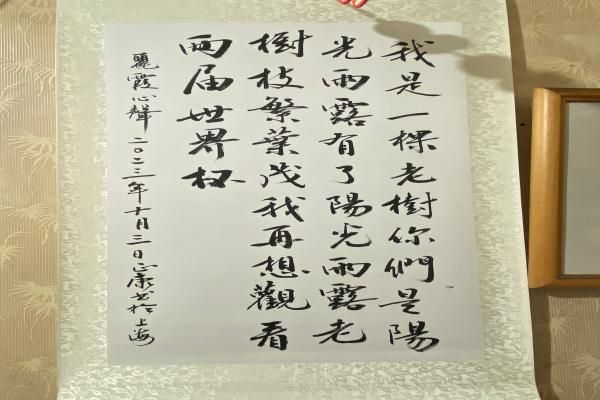 我是一棵老樹你們是陽
光雨露有了陽光雨露老
樹枝繁葉茂我再想觀看
兩届世界杯
麗霞心聲二〇二三年十月三日正康书於上海